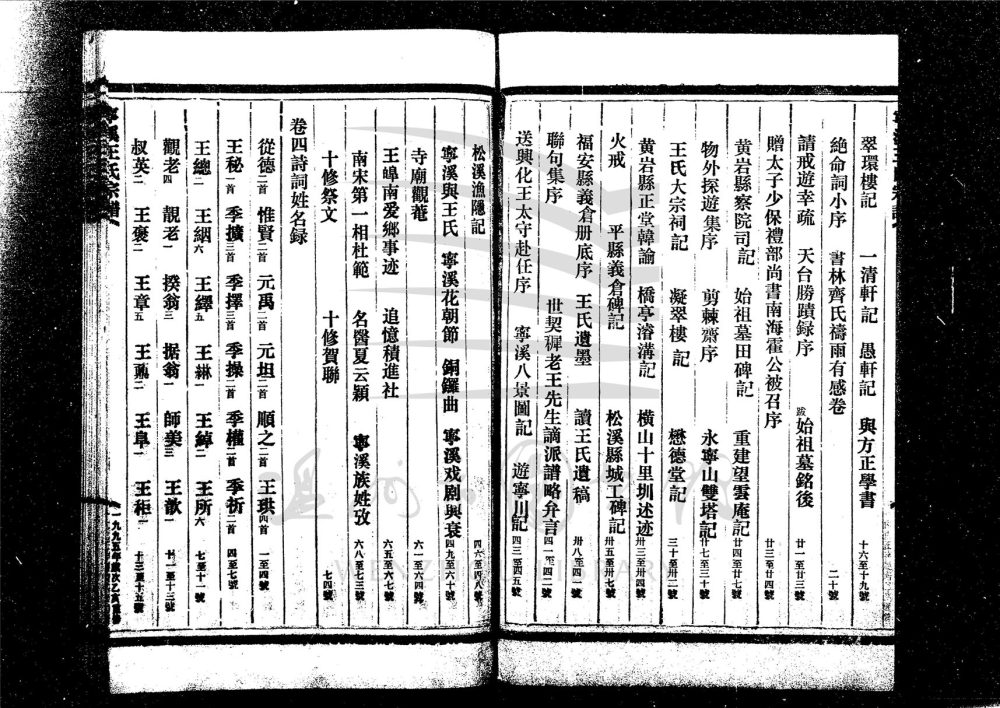 翠環樓記　一清軒記　愚軒記　與方正學書　十六至十九號
絶命詞小序　書林齊氏禱雨有感卷　二十號
請戒遊幸疏　天台勝蹟録序　跋始祖墓銘後　廿一至廿三號
贈太子少保禮部尚書南海霍公被召序　廿三至廿四號
黄岩縣察院司記　始祖墓田碑記　重建望雲庵記　廿四至廿七號
物外探遊集序　剪棘齋序　永寧山雙塔記　廿七至三十號
王氏大宗祠記　凝翠樓記　懋德堂記　三十至卅二號
黄岩縣正堂韓諭　橋亭濬溝記　横山十里圳述迹　卅三至卅四號
火戒　平縣義倉碑記　松溪縣城工碑記　卅五至卅七號
福安縣義倉册底序　王氏遺墨　讀王氏遺稿　卅八至四一號
聯句集序　世契穉老王先生謫派譜略弁言　四一至四二號
送興化王太守赴任序　寧溪八景圖記　遊寧川記　四三至四五號
松溪漁隱記　四六至四八號
寧溪與王氏　寧溪花朝節　銅鑼曲　寧溪戏剧興衰　四九至六十號
寺廟觀菴　六一至六四號
王埠南爱鄉事迹　追憶積進社　六五至六七號
南宋第一相杜範　名醫夏云穎　寧溪族姓攷　六八至七三號
十修祭文　十修賀聯　七四號
卷四詩詞姓名録
從德二首　惟賢二首　元禹二首　元坦二首　順之二首　王珙四首　一至四號
王秘一首　季擴三首　季擇三首　季操二首　季權二首　季析二首　四至七號
王總二　王絪六　王繹五　王綝一　王綽二　王所六　七至十一號
觀老四　靚老一　揆翁三　据翁一　師美三　王歆一　十一至十三號
叔英二　王褒二　王章五　王　二　王阜一　王秬一　十三至十五號
寧溪王氏宗譜
一九九五年歲次乙亥重修